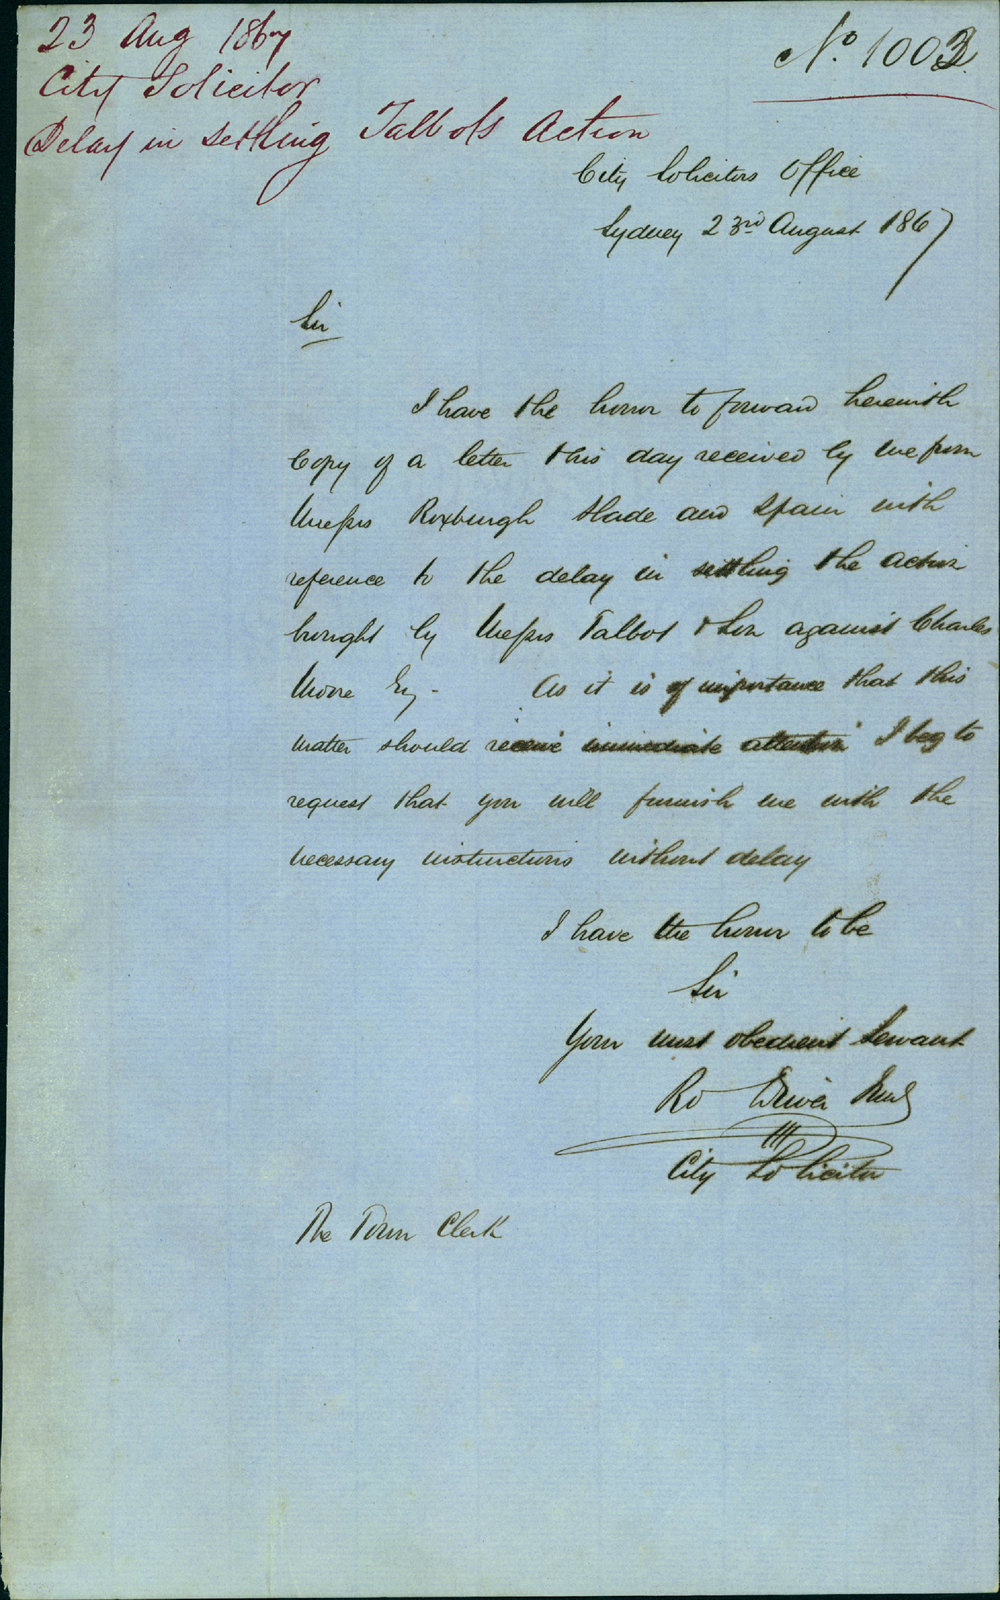 23 Aug 1867
City Solicitor
Delay in settling Talbots Action
No. 1003
City Solicitors Office
Sydney 23rd August 1867
Sir
I have the honor to forward herewith
Copy of a letter this day received by me from
Messrs Roxburgh Slade and Spain with
reference to the delay in settling the action
brought by Messrs Talbot & Son against Charles
Moore Esq - As it is of importance that this
matter should receive immediate attention I beg to
request that you will furnish me with the
necessary instructions without delay
I have the honor to be
Sir
Your most obedient Servant
Rd Driver
City Solicitor
The Town Clerk